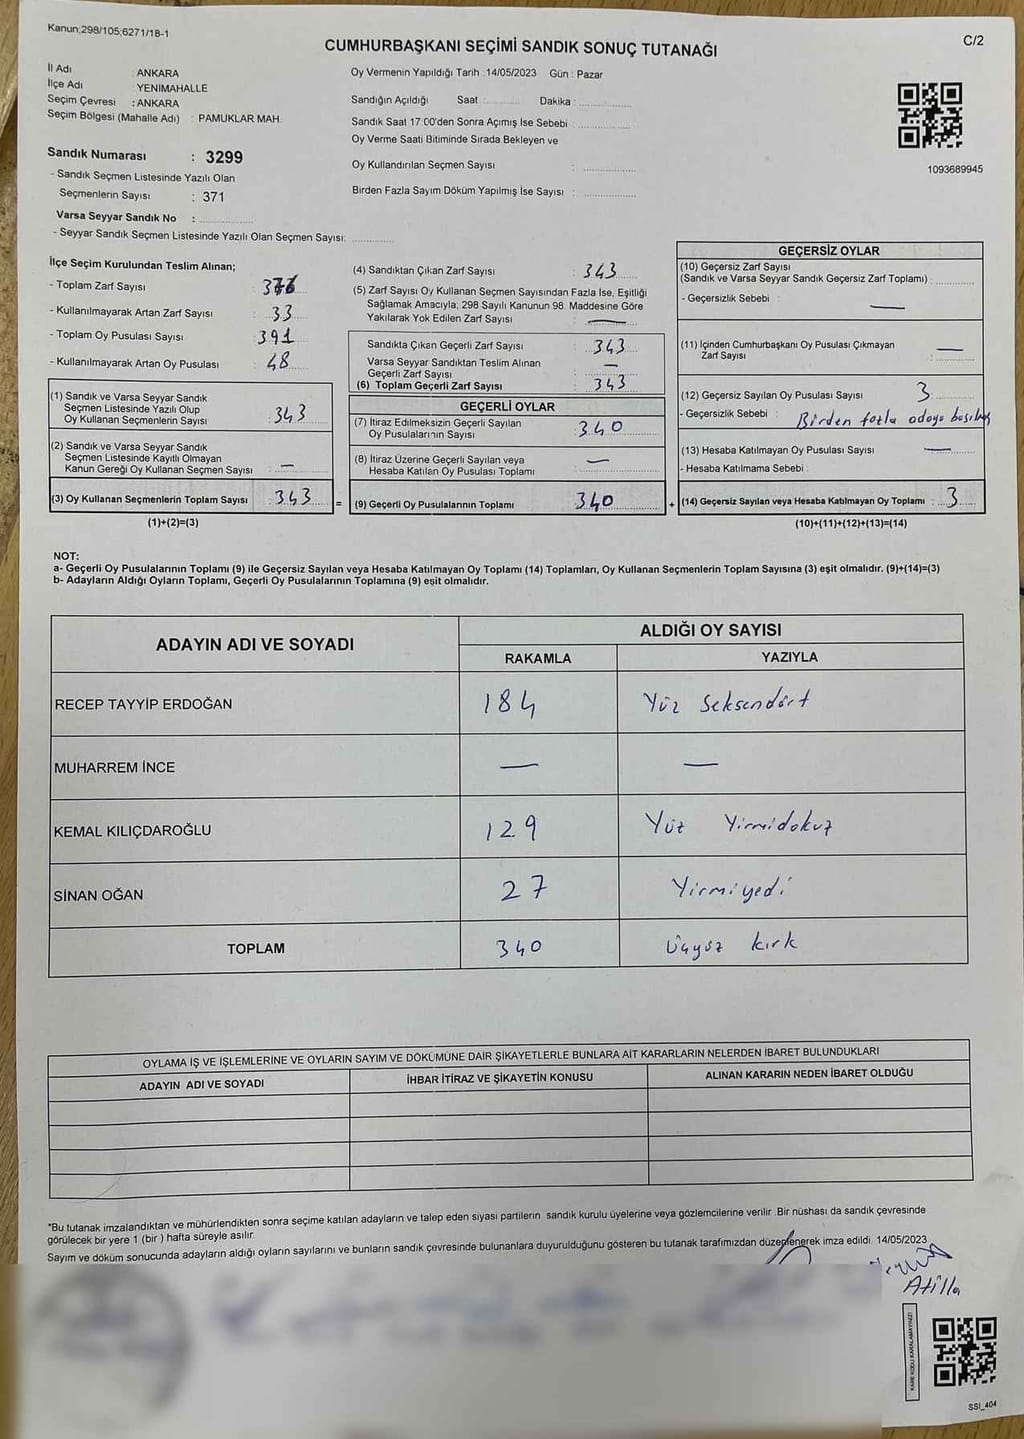 Kanun;298/105;6271/18-1
C/2
CUMHURBAŞKANI SEÇİMİ SANDIK SONUÇ TUTANAĞI
İl Adı : ANKARA
İlçe Adı : YENİMAHALLE
Seçim Çevresi : ANKARA
Seçim Bölgesi (Mahalle Adı) : PAMUKLAR MAH.
Sandık Numarası : 3299
- Sandık Seçmen Listesinde Yazılı Olan
Seçmenlerin Sayısı : 371
Varsa Seyyar Sandık No :
- Seyyar Sandık Seçmen Listesinde Yazılı Olan Seçmen Sayısı:
Oy Vermenin Yapıldığı Tarih :14/05/2023 Gün : Pazar
Sandığın Açıldığı Saat : Dakika :
Sandık Saat 17:00'den Sonra Açımış İse Sebebi :
Oy Verme Saati Bitiminde Sırada Bekleyen ve
Oy Kullandırılan Seçmen Sayısı :
Birden Fazla Sayım Döküm Yapılmış İse Sayısı :
1093689945
İlçe Seçim Kurulundan Teslim Alınan;
- Toplam Zarf Sayısı : 376
- Kullanılmayarak Artan Zarf Sayısı : 33
- Toplam Oy Pusulası Sayısı : 391
- Kullanılmayarak Artan Oy Pusulası : 48
(1) Sandık ve Varsa Seyyar Sandık
Seçmen Listesinde Yazılı Olup
Oy Kullanan Seçmenlerin Sayısı : 343
(2) Sandık ve Varsa Seyyar Sandık
Seçmen Listesinde Kayıtlı Olmayan
Kanun Gereği Oy Kullanan Seçmen Sayısı : —
(3) Oy Kullanan Seçmenlerin Toplam Sayısı : 343 =
(1)+(2)=(3)
(4) Sandıktan Çıkan Zarf Sayısı : 343
(5) Zarf Sayısı Oy Kullanan Seçmen Sayısından Fazla İse, Eşitliği
Sağlamak Amacıyla; 298 Sayılı Kanunun 98. Maddesine Göre
Yakılarak Yok Edilen Zarf Sayısı : —
Sandıkta Çıkan Geçerli Zarf Sayısı : 343
Varsa Seyyar Sandıktan Teslim Alınan
Geçerli Zarf Sayısı : —
(6) Toplam Geçerli Zarf Sayısı : 343
GEÇERLİ OYLAR
(7) İtiraz Edilmeksizin Geçerli Sayılan
Oy Pusulalarının Sayısı : 340
(8) İtiraz Üzerine Geçerli Sayılan veya
Hesaba Katılan Oy Pusulası Toplamı : —
(9) Geçerli Oy Pusulalarının Toplamı : 340 +
GEÇERSİZ OYLAR
(10) Geçersiz Zarf Sayısı
(Sandık ve Varsa Seyyar Sandık Geçersiz Zarf Toplamı) :
- Geçersizlik Sebebi : —
(11) İçinden Cumhurbaşkanı Oy Pusulası Çıkmayan
Zarf Sayısı : —
(12) Geçersiz Sayılan Oy Pusulası Sayısı : 3
- Geçersizlik Sebebi : Birden fazla adaya basılmış
(13) Hesaba Katılmayan Oy Pusulası Sayısı : —
- Hesaba Katılmama Sebebi :
(14) Geçersiz Sayılan veya Hesaba Katılmayan Oy Toplamı : 3
(10)+(11)+(12)+(13)=(14)
NOT:
a- Geçerli Oy Pusulalarının Toplamı (9) ile Geçersiz Sayılan veya Hesaba Katılmayan Oy Toplamı (14) Toplamları, Oy Kullanan Seçmenlerin Toplam Sayısına (3) eşit olmalıdır. (9)+(14)=(3)
b- Adayların Aldığı Oyların Toplamı, Geçerli Oy Pusulalarının Toplamına (9) eşit olmalıdır.
ADAYIN ADI VE SOYADI ALDIĞI OY SAYISI
RAKAMLA YAZIYLA
RECEP TAYYİP ERDOĞAN 184 Yüz Seksendört
MUHARREM İNCE — —
KEMAL KILIÇDAROĞLU 129 Yüz Yirmidokuz
SİNAN OĞAN 27 Yirmiyedi
TOPLAM 340 Üçyüz kırk
OYLAMA İŞ VE İŞLEMLERİNE VE OYLARIN SAYIM VE DÖKÜMÜNE DAİR ŞİKAYETLERLE BUNLARA AİT KARARLARIN NELERDEN İBARET BULUNDUKLARI
ADAYIN ADI VE SOYADI İHBAR İTİRAZ VE ŞİKAYETİN KONUSU ALINAN KARARIN NEDEN İBARET OLDUĞU
*Bu tutanak imzalandıktan ve mühürlendikten sonra seçime katılan adayların ve talep eden siyasi partilerin sandık kurulu üyelerine veya gözlemcilerine verilir .Bir nüshası da sandık çevresinde
görülecek bir yere 1 (bir ) hafta süreyle asılır.
Sayım ve döküm sonucunda adayların aldığı oyların sayılarını ve bunların sandık çevresinde bulunanlara duyurulduğunu gösteren bu tutanak tarafımızdan düzenlenerek imza edildi. 14/05/2023
Atilla
KARE KODU KARALAMAYINIZ!
SSI_404